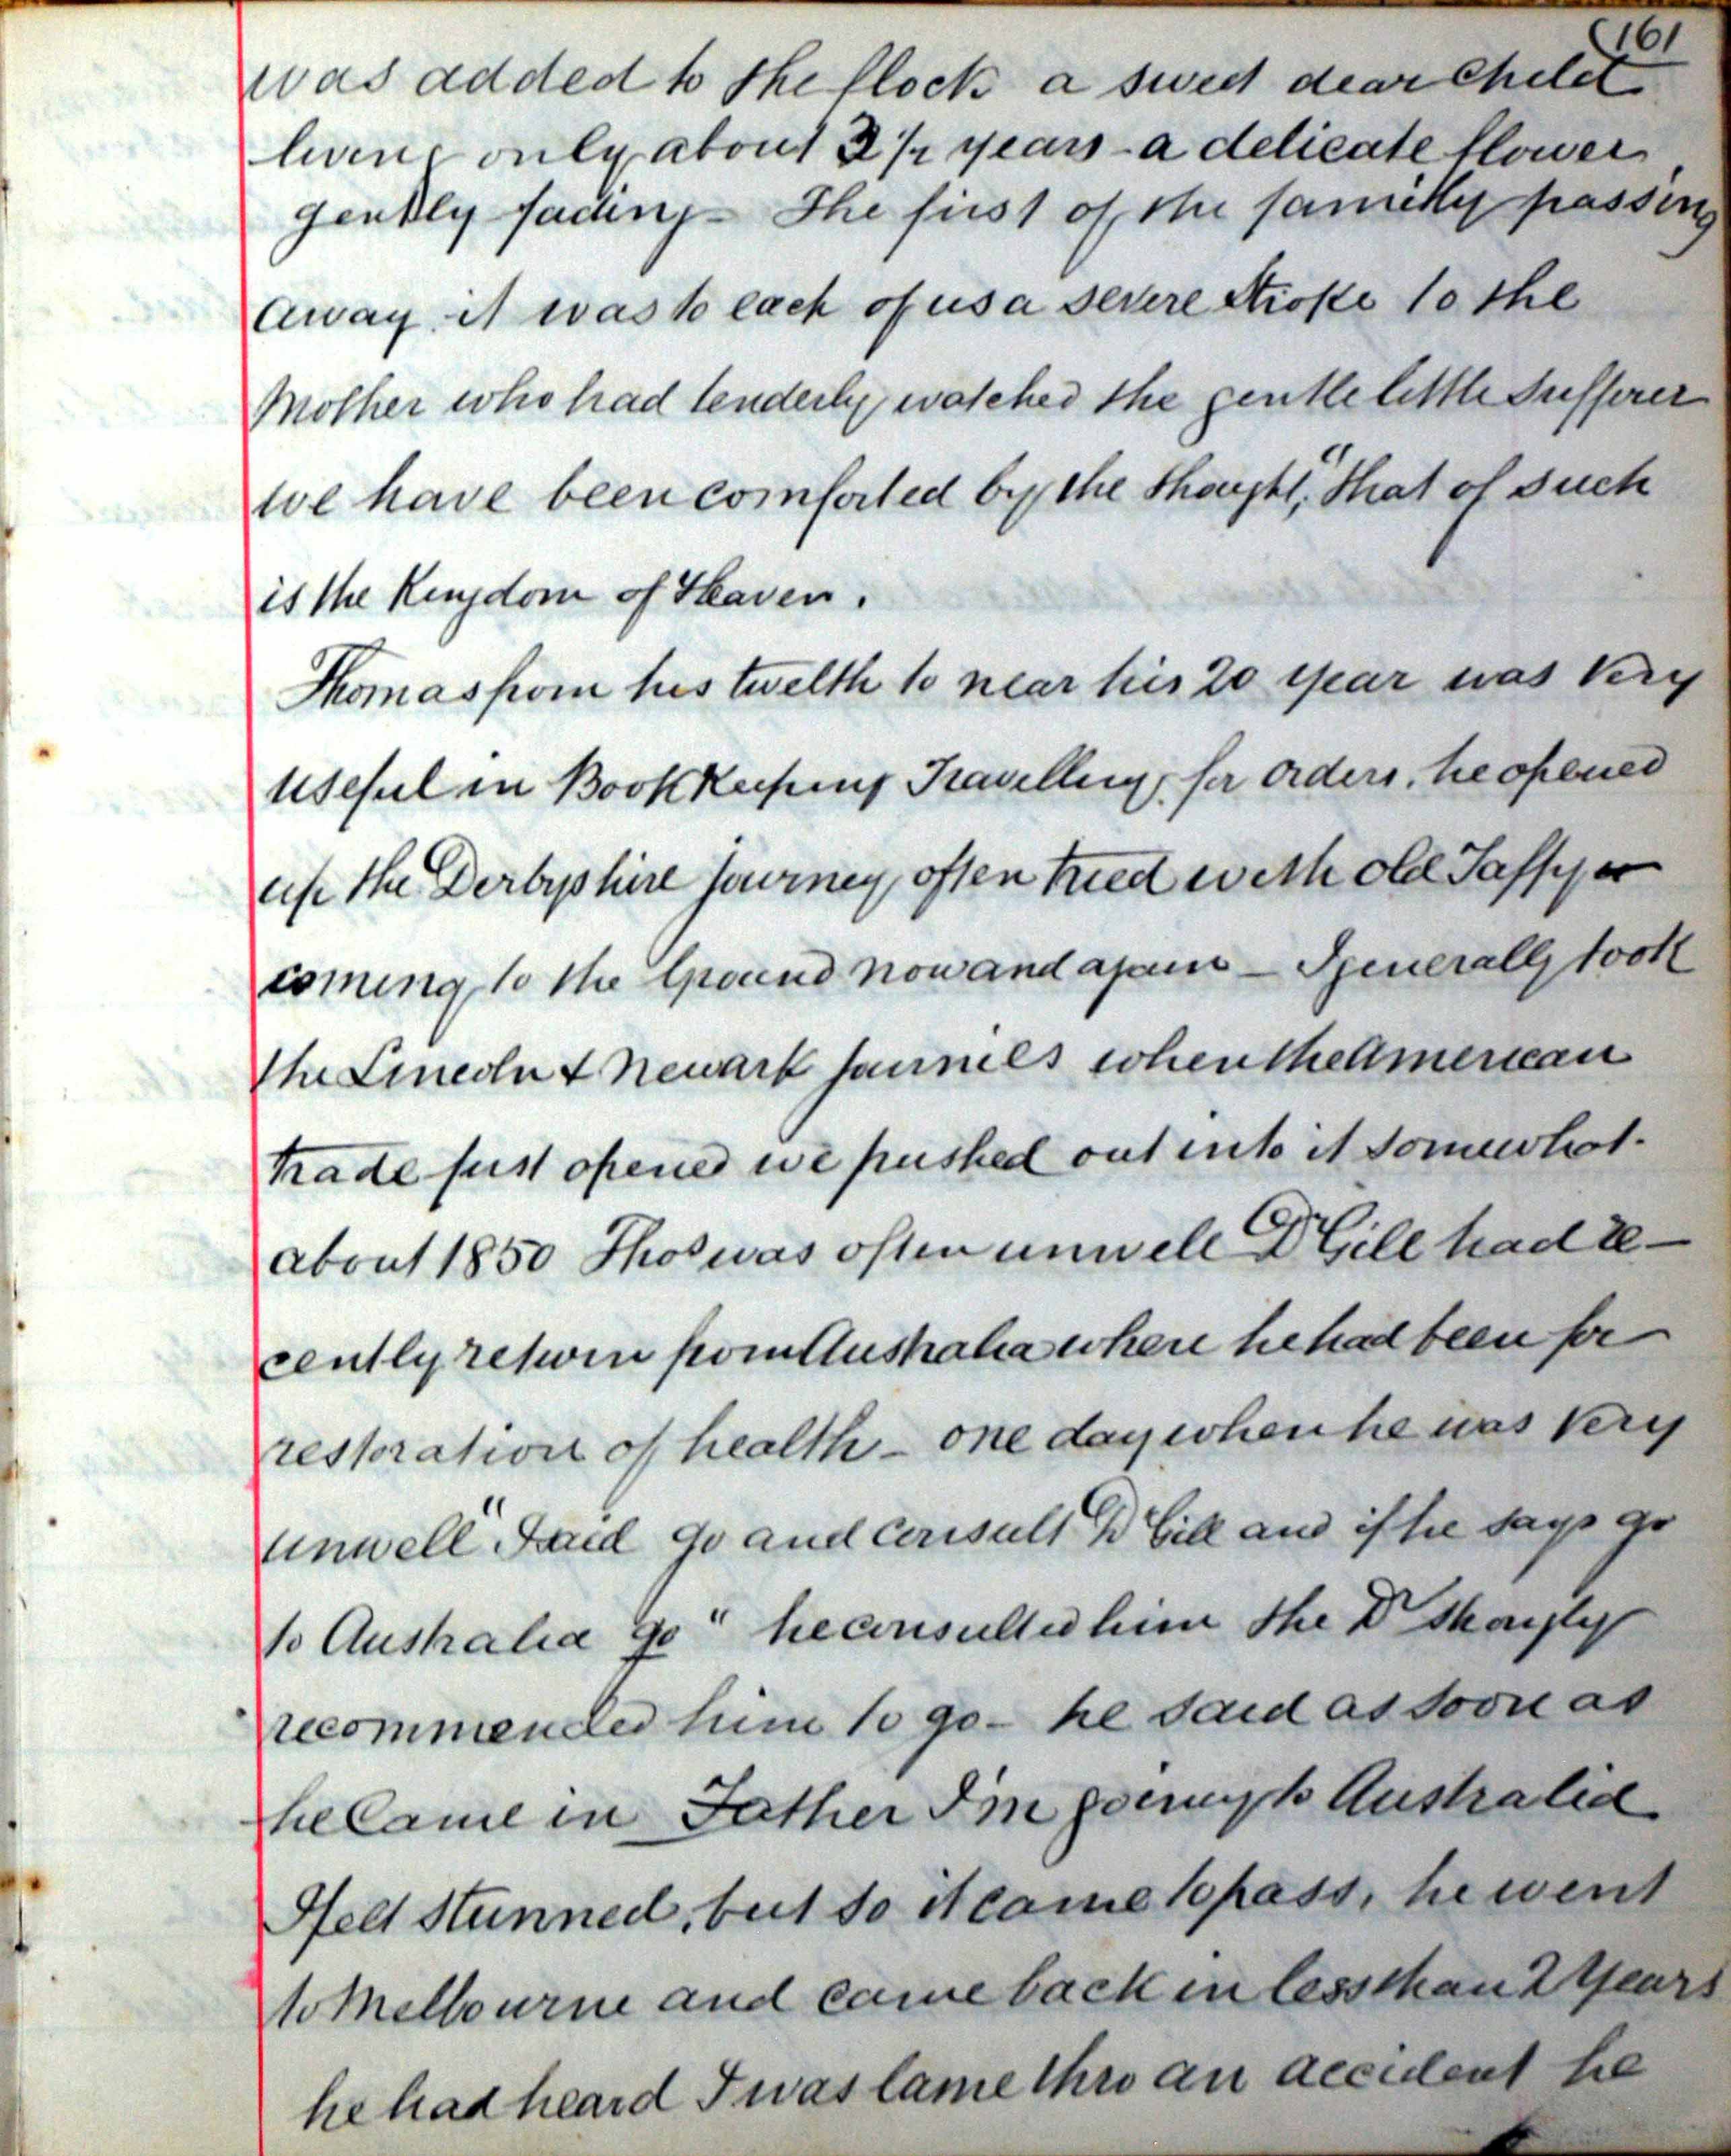 (161
was added to the flock a sweet dear Child
living only about 3 1/2 years - a delicate flower
gently fading - The first of the familly passing
away it was to each of us a severe stroke to the
Mother who had tenderly watched the gentle little sufferer
we have been comforted by the thought, "that of such
is the Kingdom of Heaven.
Thomas from his twelth to near his 20 year was very
useful in Book Keeping Travelling for orders, he opened
up the Derbyshire journey, often tried with old Taffy
coming to the Ground now and again - I generally took
the Lincoln & Newark journies when the American
trade first opened we pushed out into it somewhat.
about 1850 Thos was often unwell Dr Gill had re-
cently return from Australia where he had been for
restoration of health - one day when he was very
unwell "I said go and consult Dr Gill and if he says go
to Australia go" he consulted him the Dr strongly
recommended him to go - he said as soon as
he Came in Father I'm going to Australia
I felt stunned, but so it came to pass, he went
to Melbourne and came back in less than 2 Years
he had heard I was lame thro an accident he